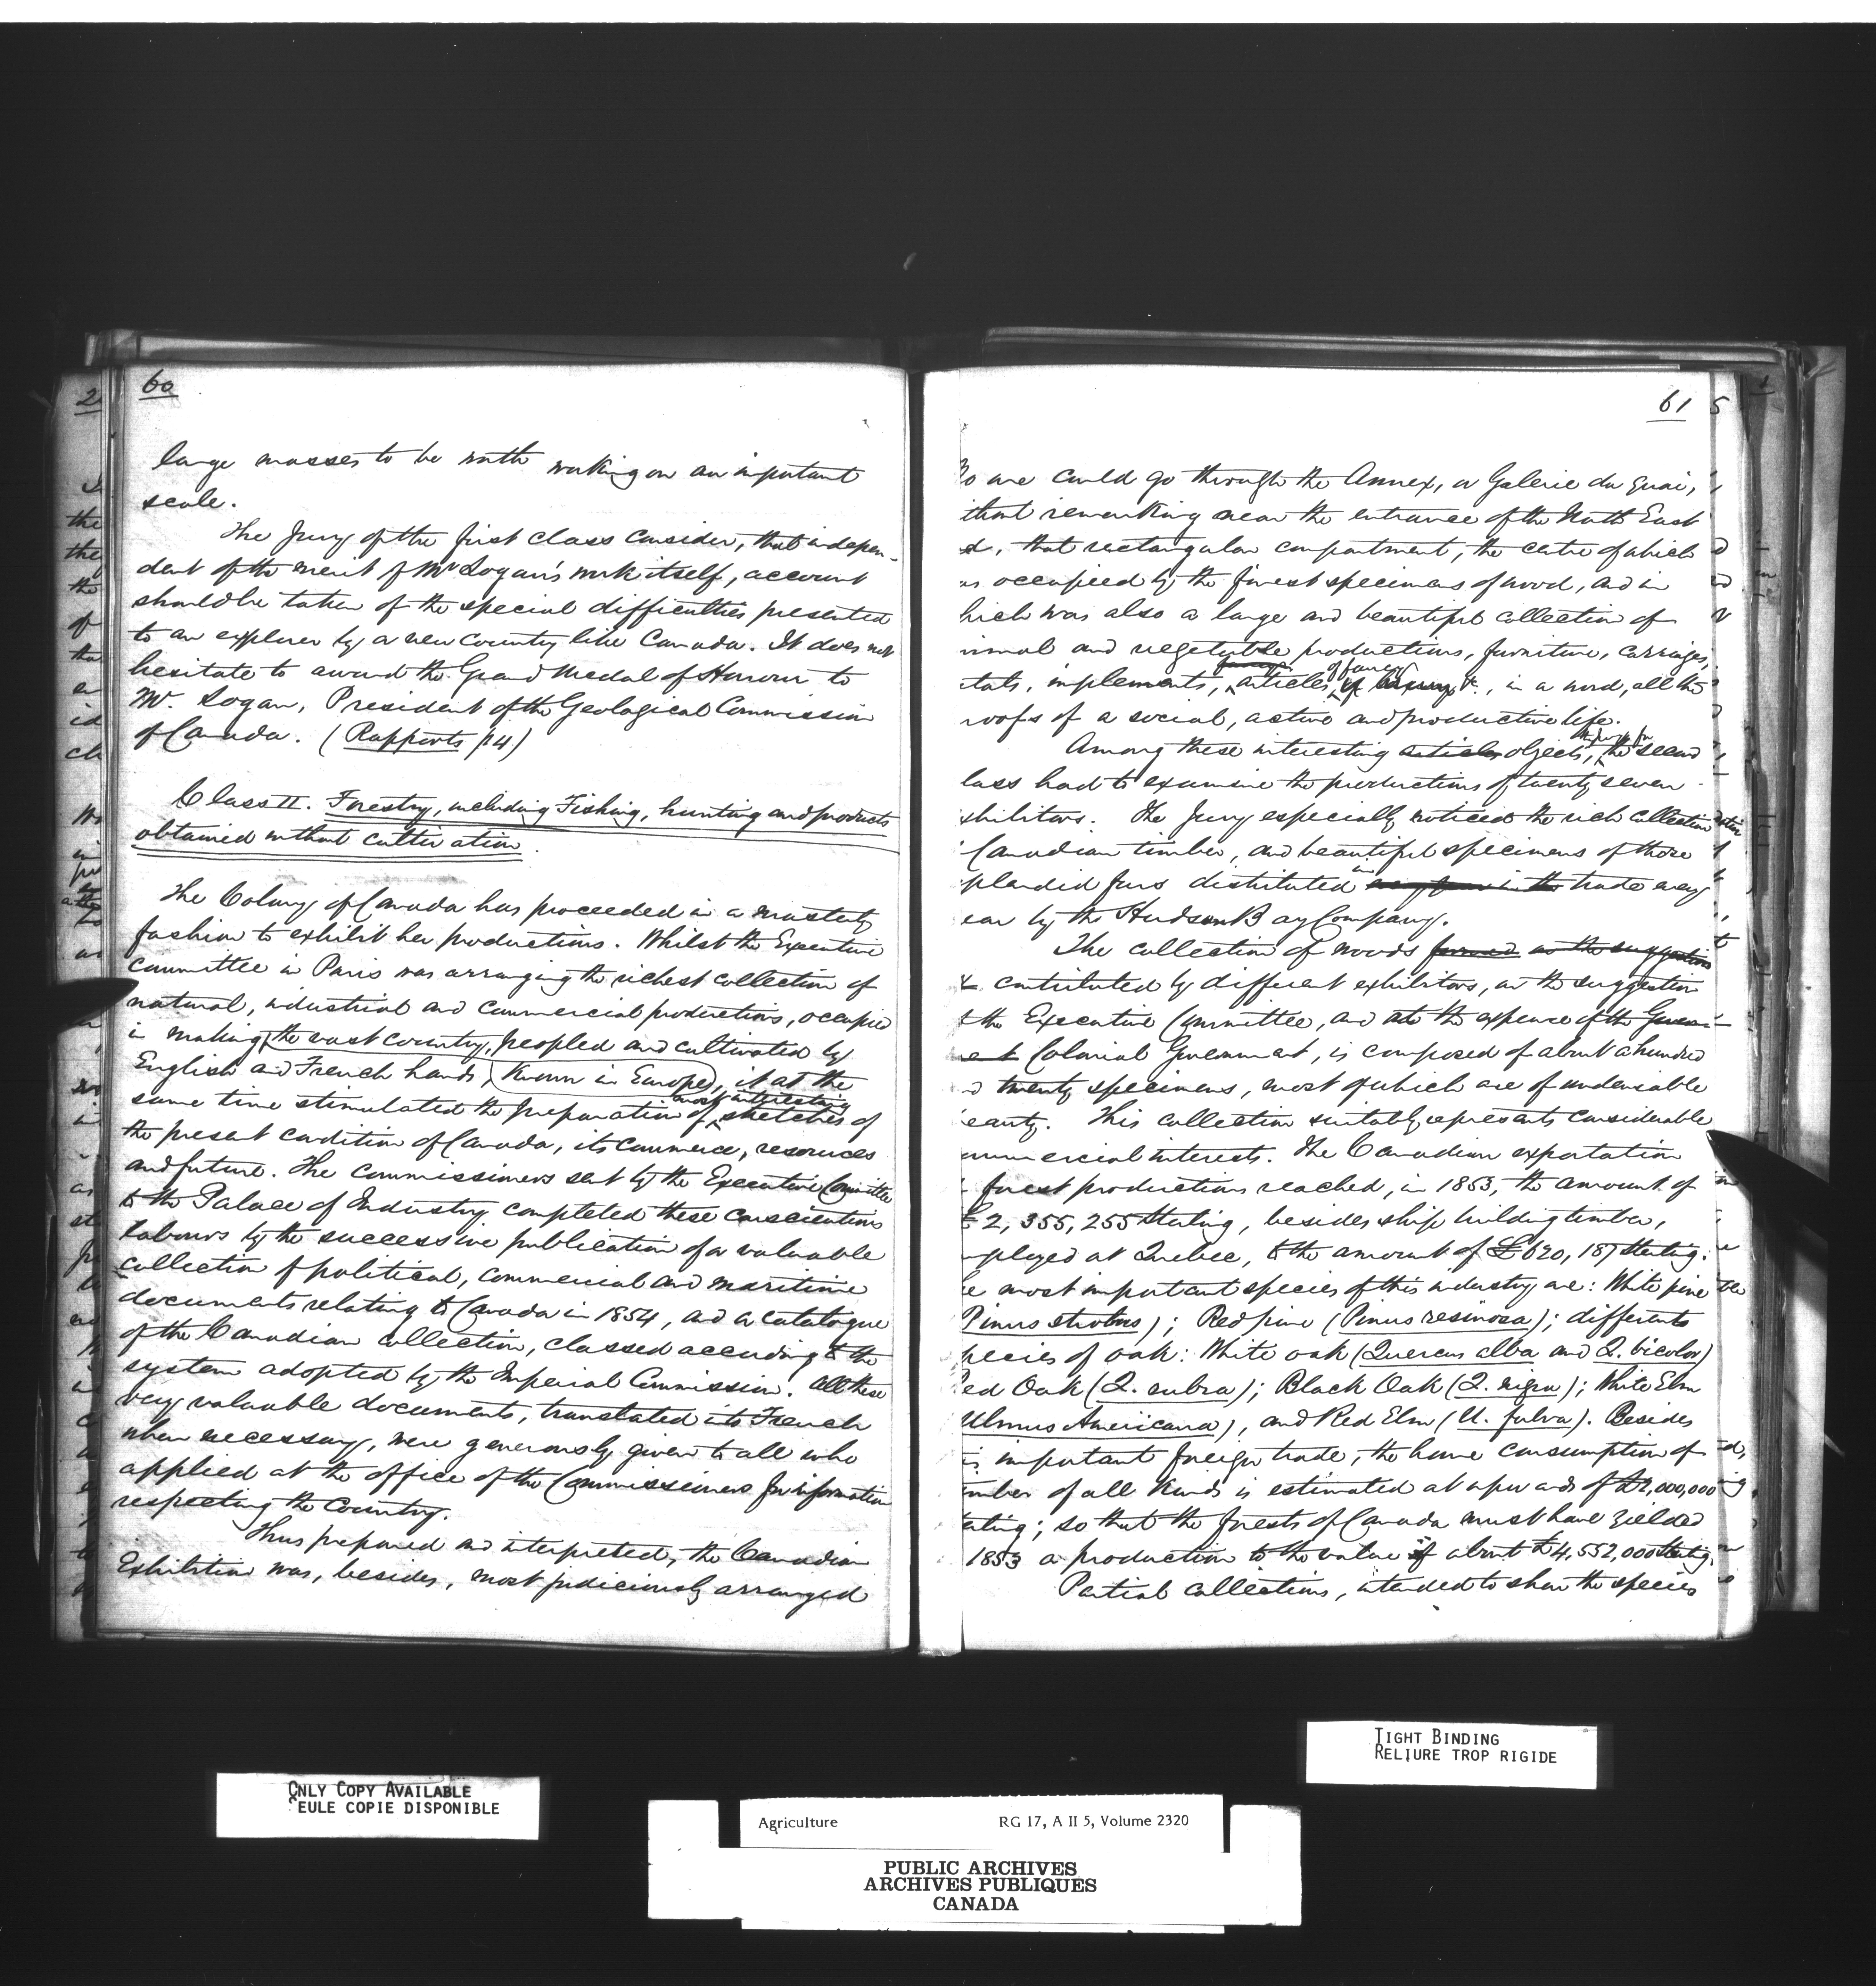 60
large masses to be worth working on an important
scale.
The Jury of the first class consider, that indepen-
dent of the merit of Mr Logan's work itself, account
should be taken of the special difficulties presented
to an explorer by a new country like Canada. It does not
hesitate to award the Grand Medal of Honour to
Mr. Logan, President of the Geological Commission
of Canada. (Rapports p 4)
Class II. Forestry, including Fishing, hunting and products
obtained without cultivation.
The Colony of Canada has proceeded in a masterly
fashion to exhibit her productions. Whilst the Executive
Committee in Paris was arranging the richest collection of
natural, industrial and commercial productions, occupied
in making the vast country, peopled and cultivated by
English and French hands, (known in Europe), it at the
same time stimulated the preparation of most interesting sketches of
the present condition of Canada, its commerce, resources
and future. The commissioners sent by the Executive Committee
to the Palace of Industry completed these conscientious
labours by the successive publication of a valuable
collection of political, commercial and maritime
documents relating to Canada in 1854, and a catalogue
of the Canadian collection, classed according to the
system adopted by the Imperial Commission. All these
very valuable documents, translated into French
when necessary, were generously given to all who
applied at the office of the Commissioners for information
respecting the Country.
Thus prepared and interpreted, the Canadian
Exhibition was, besides, most judiciously arranged
61
No one could go through the Annex, or Galerie du Quai,
ithout remarking near the entrance of the North East
d, that rectangular compartment, the centre of which
as occupied by the finest specimens of wood, and in
hich was also a large and beautiful collection of
nimal and vegetable productions, furniture, carriages,
tals, implements, articles of fancy &c., in a word, all the
roofs of a social, active and productive life.
Among these interesting articles objects, the jury for the second
lass had to examine the productions of twenty seven
xhibitors. The Jury especially noticed the rich collection
Canadian timber, and beautiful specimens of those
plendid furs distributed in the trade every
ear by the Hudson Bay Company.
The collection of woods formed on the suggestion
& contributed by different exhibitors, on the suggestion
f the Executive Committee, and at the expense of the Govern-
ment Colonial Government, is composed of about a hundred
d twenty specimens, most of which are of undeniable
eauty. This collection suitably represents considerable
mmercial interests. The Canadian exportation
forest productions reached, in 1853, the amount of
£ 2,355,255 Sterling, besides ship building timber,
mployed at Quebec, to the amount of £620,187 sterling.
he most important species of this industry are: White pine
Pinus strobus); Red pine (Pinus resinosa); different
pecies of oak: White oak (Quercus alba and Q. bicolor)
Red Oak (Q. rubra); Black Oak (Q. nigra); White Elm
Ulmus Americana), and Red Elm (U. fulva). Besides
is important foreign trade, the home consumption of
imber of all kinds is estimated at upwards of £2,000,000
terling; so that the forests of Canada must have yielded
1853 a production to the value of about £4,552,000 sterling.
Partial collections, intended to show the species
ONLY COPY AVAILABLE
SEULE COPIE DISPONIBLE
TIGHT BINDING
RELIURE TROP RIGIDE
Agriculture RG 17, A II 5, Volume 2320
PUBLIC ARCHIVES
ARCHIVES PUBLIQUES
CANADA